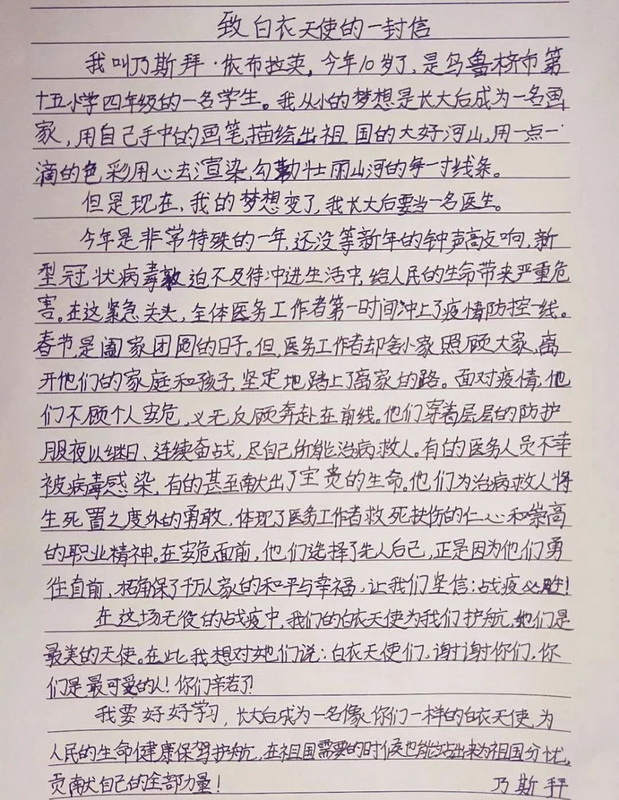 致白衣天使的一封信
我叫乃斯拜·依布拉英,今年10岁了,是乌鲁木齐市第
十五小学四年级的一名学生。我从小的梦想是长大后成为一名画
家,用自己手中的画笔,描绘出祖国的大好河山,用一点一
滴的色彩用心去渲染、勾勒壮丽山河的每一寸线条。
但是现在,我的梦想变了,我长大后要当一名医生。
今年是非常特殊的一年,还没等新年的钟声敲响,新
型冠状病毒就迫不及待冲进生活中,给人民的生命带来严重危
害。在这紧急关头,全体医务工作者第一时间冲上了疫情防控一线。
春节是阖家团圆的日子。但,医务工作者却舍小家照顾大家,离
开他们的家庭和孩子,坚定地踏上了离家的路。面对疫情,他
们不顾个人安危,义无反顾奔赴在前线。他们穿着层层的防护
服夜以继日、连续奋战,尽自己所能治病救人。有的医务人员不幸
被病毒感染,有的甚至献出了宝贵的生命。他们为治病救人将
生死置之度外的勇敢,体现了医务工作者救死扶伤的仁心和崇高
的职业精神。在安危面前,他们选择了先人后己,正是因为他们勇
往直前,才确保了千万人家的和平与幸福,让我们坚信:战疫必胜!
在这场无役的战疫中,我们的白衣天使为我们护航,她们是
最美的天使。在此我想对她们说:白衣天使们,谢谢你们,你
们是最可爱的人!你们辛苦了!
我要好好学习,长大后成为一名像你们一样的白衣天使,为
人民的生命健康保驾护航,在祖国需要的时候也能站出来为祖国分忧,
贡献自己的全部力量! 乃斯拜